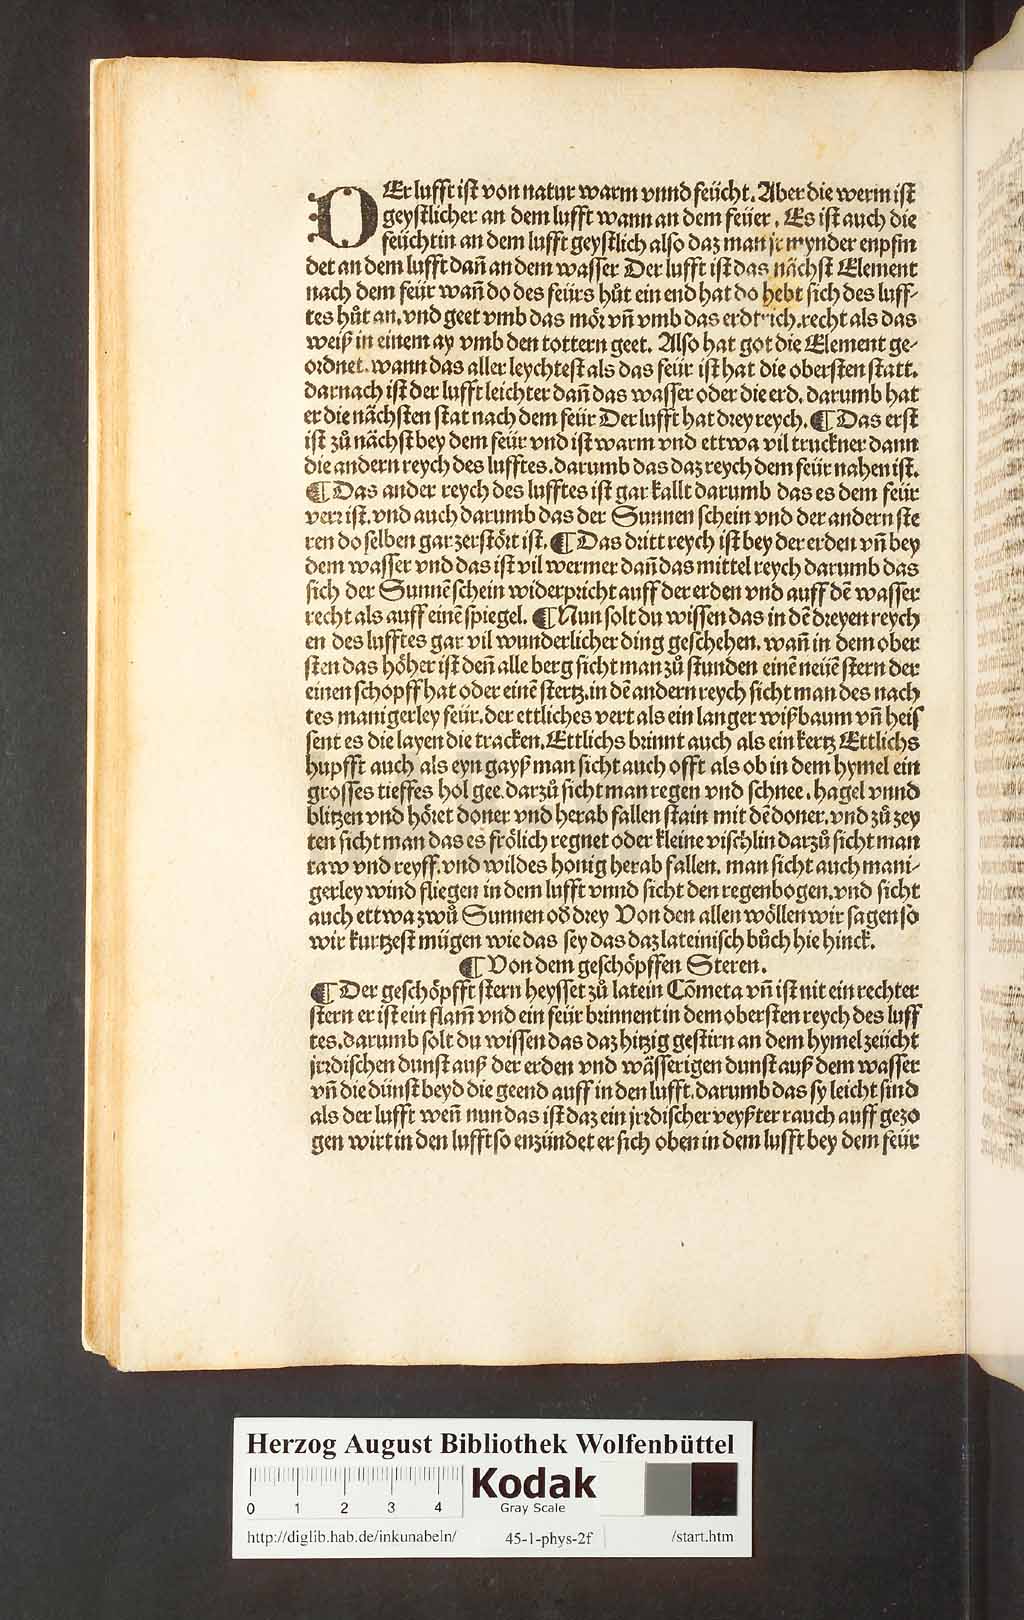 DEr lufft ist von natur warm vnnd feücht. Aber die werm ist
geystlicher an dem lufft wann an dem feüer. Es ist auch die
feüchtin an dem lufft geystlich also daz man ir mynder enpfin
det an dem lufft dañ an dem wasser Der lufft ist das nächst Element
nach dem feür wañ do des feürs hůt ein end hat do hebt sich des luff-
tes hůt an. vnd geet vmb das mör vñ vmb das erdtrich. recht als das
weiß in einem ay vmb den tottern geet. Also hat got die Element ge-
ordnet. wann das aller leychtest als das feür ist hat die obersten statt.
darnach ist der lufft leichter dañ das wasser oder die erd. darumb hat
er die nächsten stat nach dem feür Der lufft hat drey reych. ¶ Das erst
ist zů nächst bey dem feür vnd ist warm vnd ettwa vil truckner dann
die andern reych des lufftes. darumb das daz reych dem feür nahen ist.
¶ Das ander reych des lufftes ist gar kallt darumb das es dem feür
verr ist. vnd auch darumb das der Sunnen schein vnd der andern ste
ren do selben gar zerstört ist. ¶ Das dritt reych ist bey der erden vñ bey
dem wasser vnd das ist vil wermer dañ das mittel reych darumb das
sich der Sunnē schein widerpricht auff der erden vnd auff dē wasser
recht als auff einē spiegel. ¶ Nun solt du wissen das in dē dreyen reych
en des lufftes gar vil wunderlicher ding geschehen. wañ in dem ober
sten das höher ist deñ alle berg sicht man zů stunden einē neüē stern der
einen schopff hat oder einē stertz. in dē andern reych sicht man des nach
tes manigerley feür. der ettliches vert als ein langer wißbaum vñ heis
sent es die layen die tracken. Ettlichs brinnt auch als ein kertz Ettlichs
hupfft auch als eyn gayß man sicht auch offt als ob in dem hymel ein
grosses tieffes hol gee. darzů sicht man regen vnd schnee. hagel vnnd
blitzen vnd höret doner vnd herab fallen stain mit dē doner. vnd zů zey
ten sicht man das es frölich regnet oder kleine vischlin darzů sicht man
taw vnd reyff. vnd wildes honig herab fallen. man sicht auch mani-
gerley wind fliegen in dem lufft vnnd sicht den regenbogen. vnd sicht
auch ettwa zwů Sunnen od̄ drey Von den allen wöllen wir sagen so
wir kurtzest mügen wie das sey das daz lateinisch bůch hie hinck.
¶ Von dem geschöpffen Steren.
¶ Der geschöpfft stern heysset zů latein Cōmeta vñ ist nit ein rechter
stern er ist ein flam̄ vnd ein feür brinnent in dem obersten reych des luff
tes. darumb solt du wissen das daz hitzig gestirn an dem hymel zeücht
jrrdischen dunst auß der erden vnd wässerigen dunst auß dem wasser
vñ die dünst beyd die geend auff in den lufft. darumb das sy leicht sind
als der lufft weñ nun das ist daz ein jrrdischer veyßter rauch auff gezo
gen wirt in den lufft so enzündet er sich oben in dem lufft bey dem feür
Herzog August Bibliothek Wolfenbüttel
0 1 2 3 4
Kodak
Gray Scale
http://diglib.hab.de/inkunabeln/ 45-1-phys-2f /start.htm